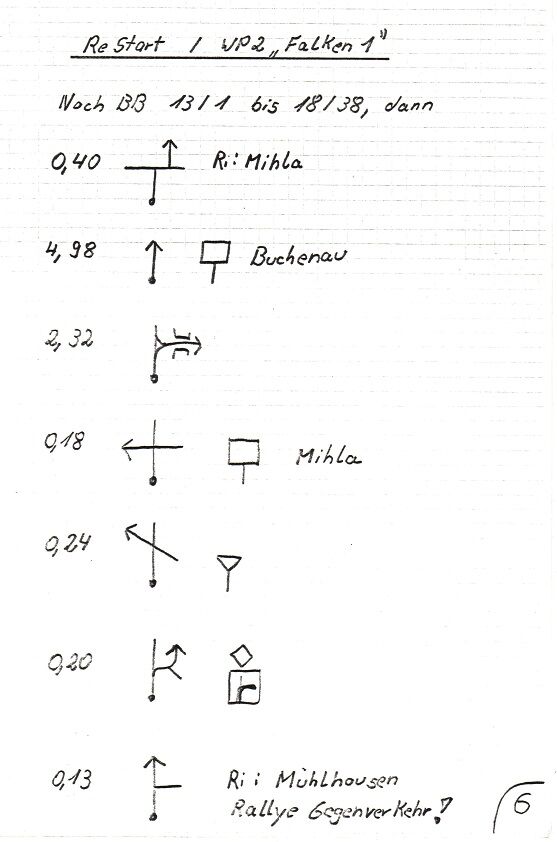 Re Start / WP2 „Falken 1"
Nach BB 13/1 bis 18/38, dann
0,40 Ri: Mihla
4,98 Buchenau
2,32
0,18 Mihla
0,24
0,20
0,13 Ri: Mühlhausen
Rallye Gegenverkehr!
6